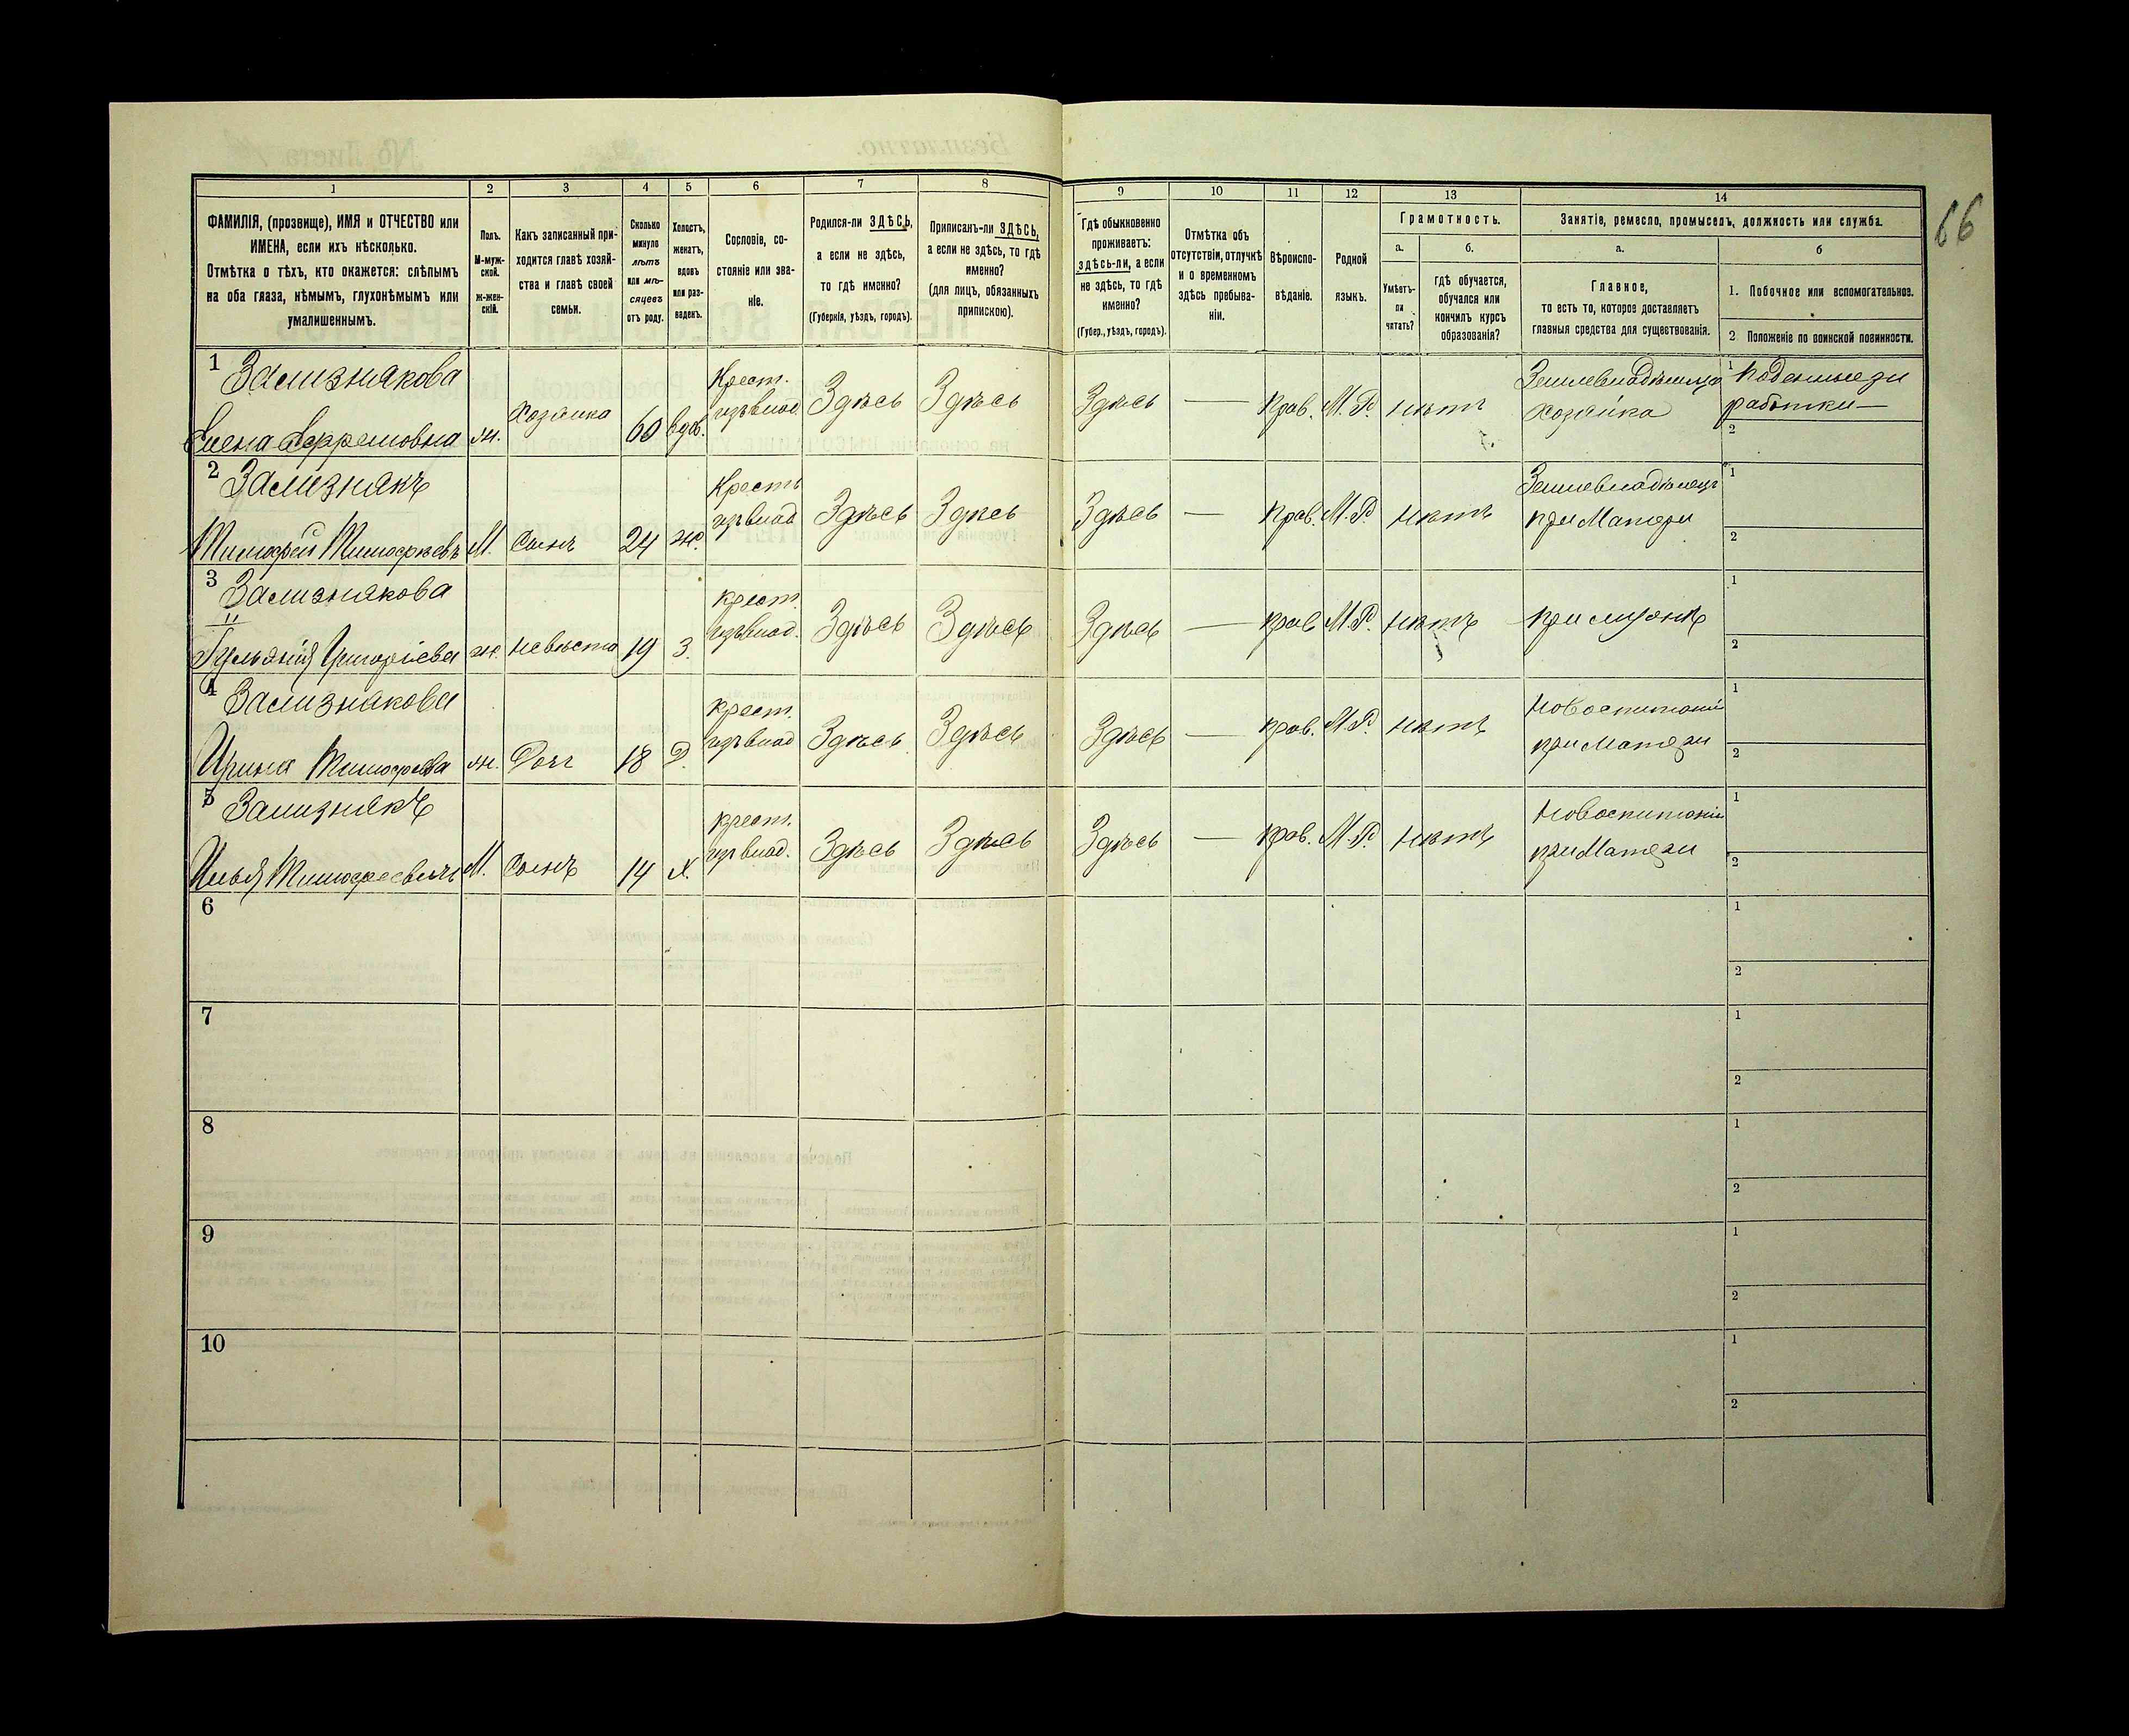 66
1 2 3 4 5 6 7 8 9 10 11 12 13 14
ФАМИЛІЯ, (прозвище), ИМЯ и ОТЧЕСТВО или
ИМЕНА, если ихъ нѣсколько.
Отмѣтка о тѣхъ, кто окажется: слѣпымъ
на оба глаза, нѣмымъ, глухонѣмымъ или
умалишеннымъ.
Полъ.
М-муж-
ской.
Ж-жен-
скій.
Какъ записанный при-
ходится главѣ хозяй-
ства и главѣ своей
семьи.
Сколько
минуло
лѣтъ
или мѣ-
сяцевъ
отъ роду.
Холостъ,
женатъ,
вдовъ
или раз-
веденъ.
Сословіе, со-
стояніе или зва-
ніе.
Родился-ли ЗДѢСЬ,
а если не здѣсь,
то гдѣ именно?
(Губернія, уѣздъ, городъ).
Приписанъ-ли ЗДѢСЬ,
а если не здѣсь, то гдѣ
именно?
(для лицъ, обязанныхъ
припискою).
Гдѣ обыкновенно
проживаетъ:
здѣсь-ли, а если
не здѣсь, то гдѣ
именно?
(Губер., уѣздъ, городъ).
Отмѣтка объ
отсутствіи, отлучкѣ
и о временномъ
здѣсь пребыва-
ніи.
Вѣроиспо-
вѣданіе.
Родной
языкъ.
Грамотность.
а.
Умѣетъ-
ли
читать?
б.
гдѣ обучается,
обучался или
кончилъ курсъ
образованія?
Занятіе, ремесло, промыселъ, должность или служба.
а.
Главное,
то есть то, которое доставляетъ
главныя средства для существованія.
б
1. Побочное или вспомогательное.
2. Положеніе по воинской повинности.
1 Зализнякова Крест. Землевладѣлица 1 Поденные зи
Хозяйка изъ влад. Здѣсь Здѣсь Здѣсь — Прав. М.Р. нѣтъ Хозяйка работки —
Елена Ефремовна ж. 60 вдв. 2
2 Зализнякъ Крестъ Землевладѣлецъ 1
изъ влад Здѣсь Здѣсь Здѣсь — Прав. М.Р. нѣтъ при Матери
Тимофей Тимофѣевъ М. Сынъ 24 ж. 2
3 Зализнякова крест. 1
изъ влад. Здѣсь Здѣсь Здѣсь — прав М.Р. нѣтъ при мужѣ
Григоріева ж. невѣста 19 З. 2
4 Зализнякова крест. на воспитаніи 1
изъ влад Здѣсь Здѣсь Здѣсь — прав. М.Р. нѣтъ при Матери
Ирина Тимофѣева ж. Дочь 18 Д. 2
5 Зализнякъ крест. на воспитаніи 1
изъ влад. Здѣсь Здѣсь Здѣсь — прав. М.Р. нѣтъ при Матери
Илья Тимофеевичъ М. Сынъ 14 х. 2
6 1
2
7 1
2
8 1
2
9 1
2
10 1
2